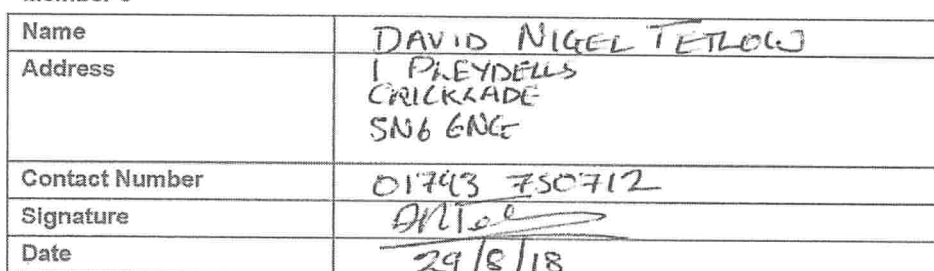 Name DAVID NIGEL TETLOW
Address 1 PLEYDELLS
CRICKLADE
SN6 6NG
Contact Number 01743 750712
Signature
Date 29/8/18